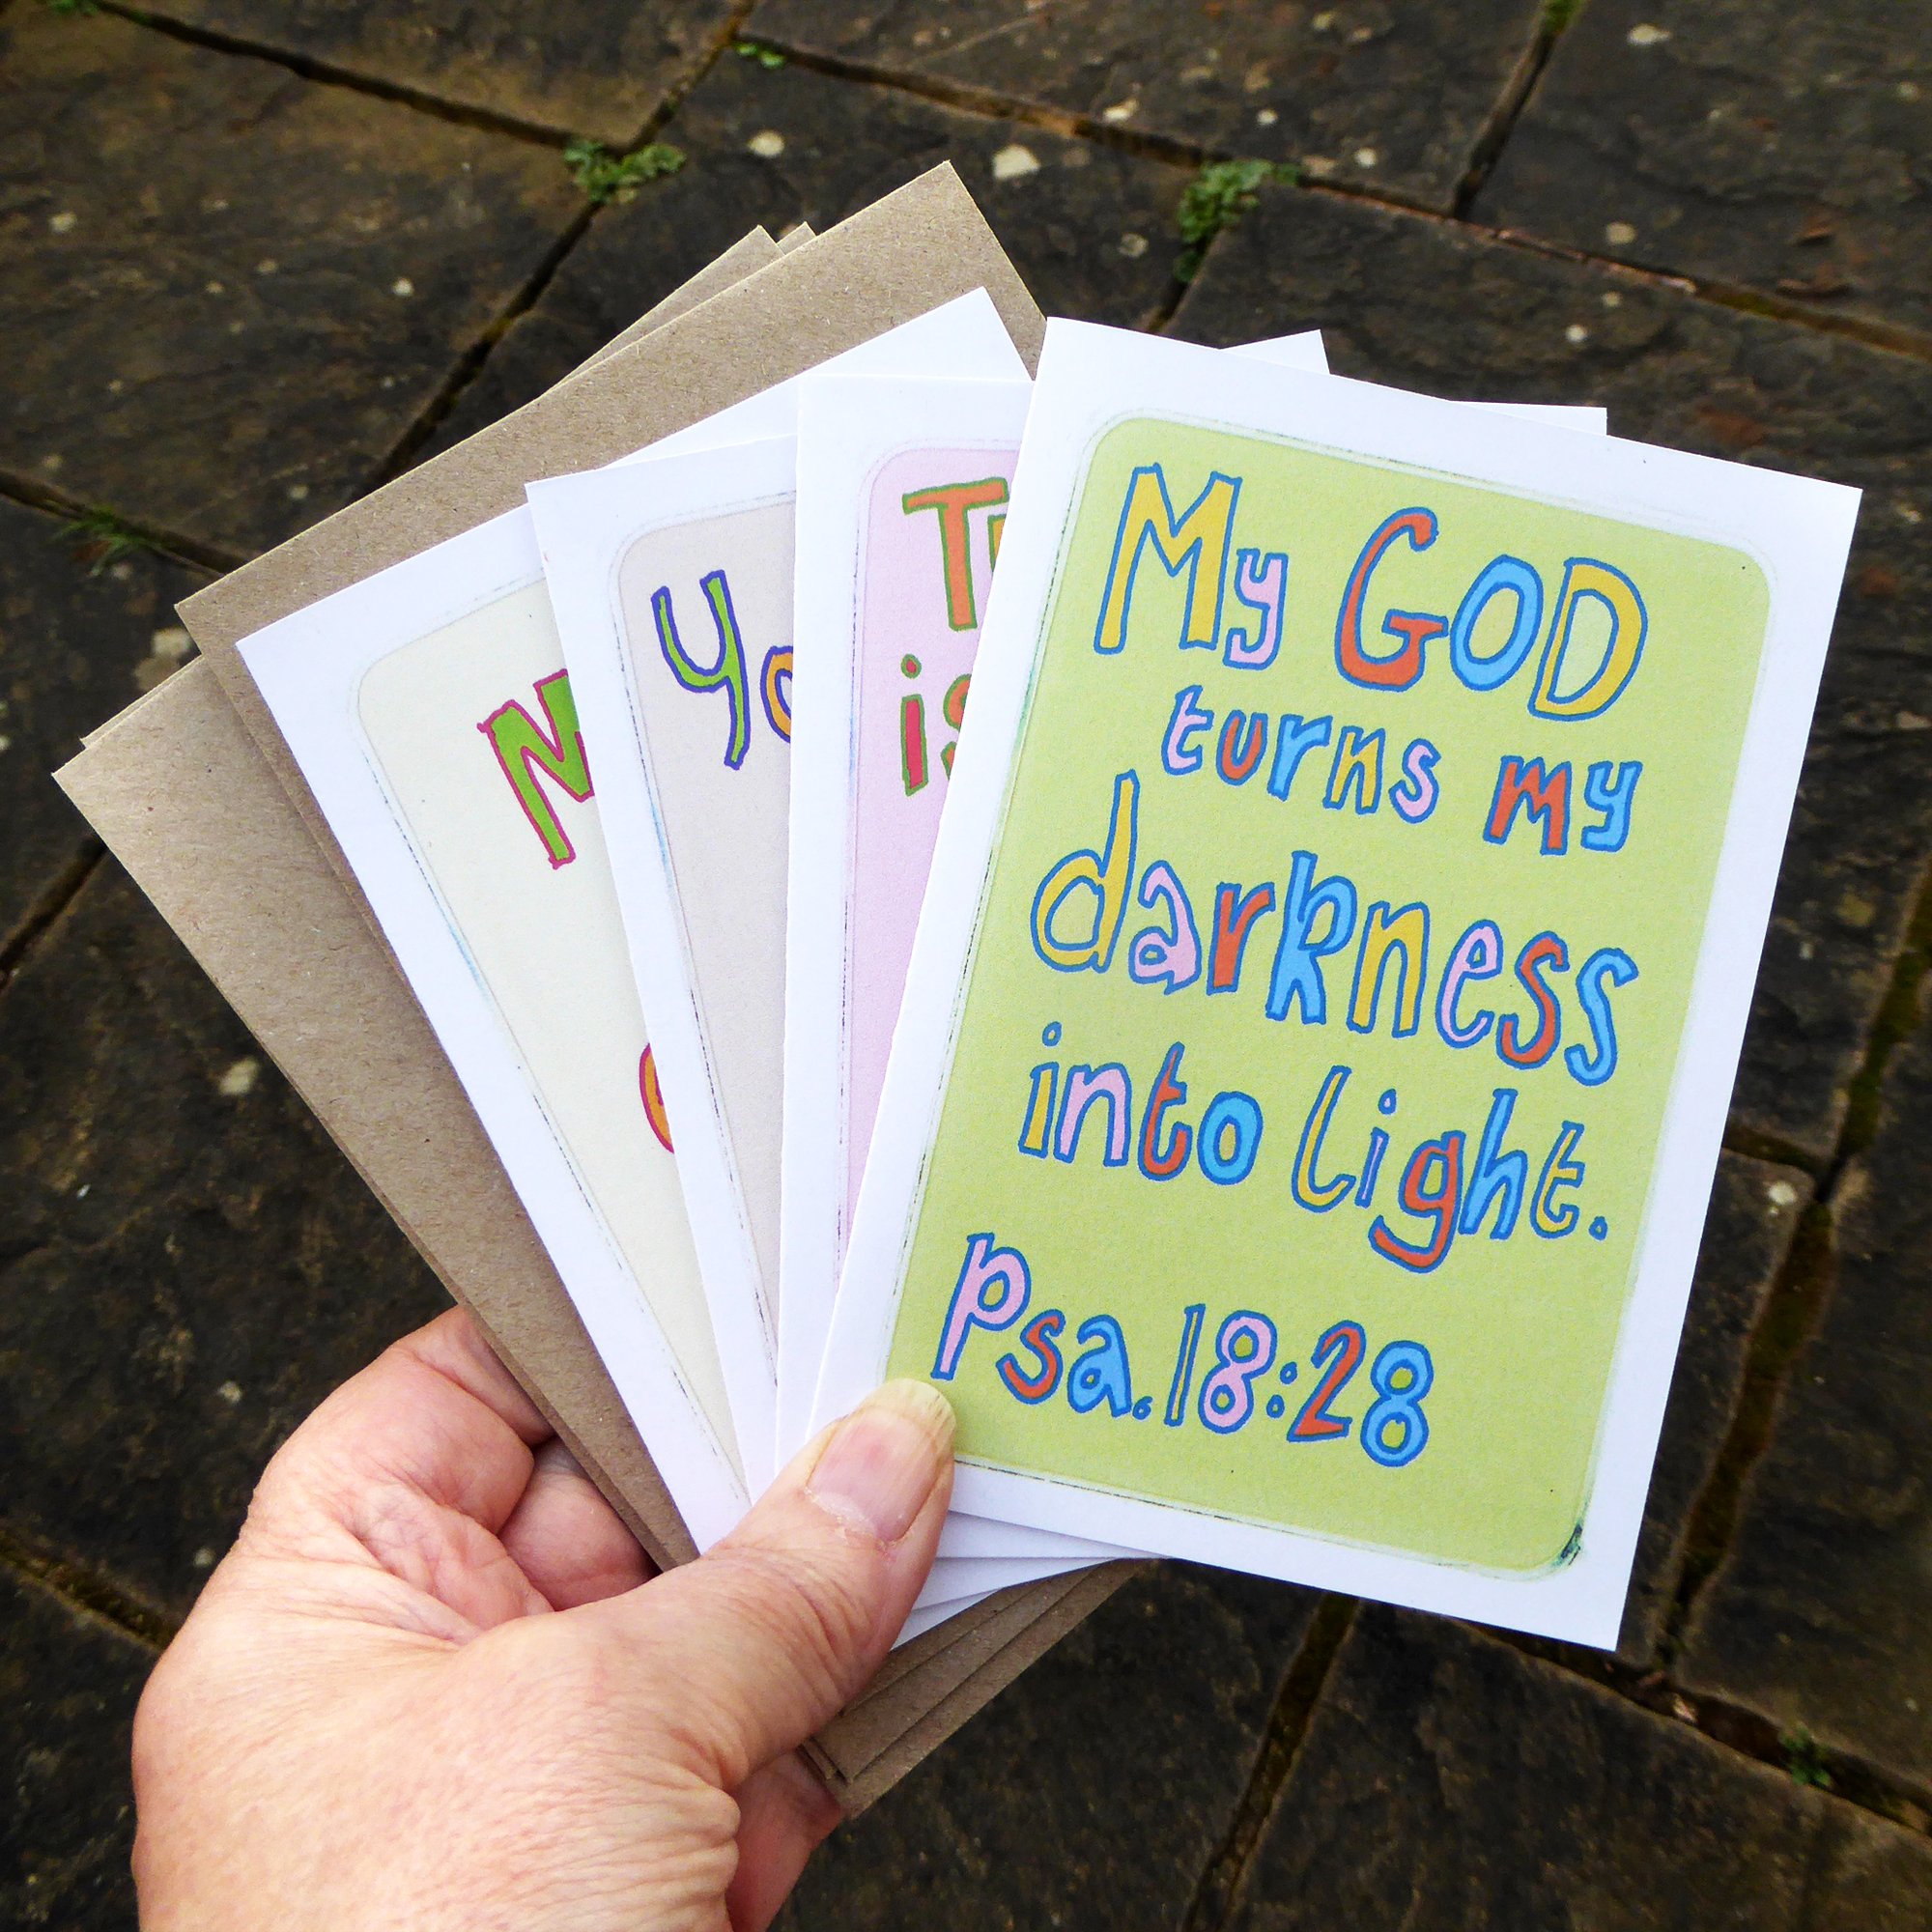 My GOD
turns my
darkness
into light.
Psa.18:28
is